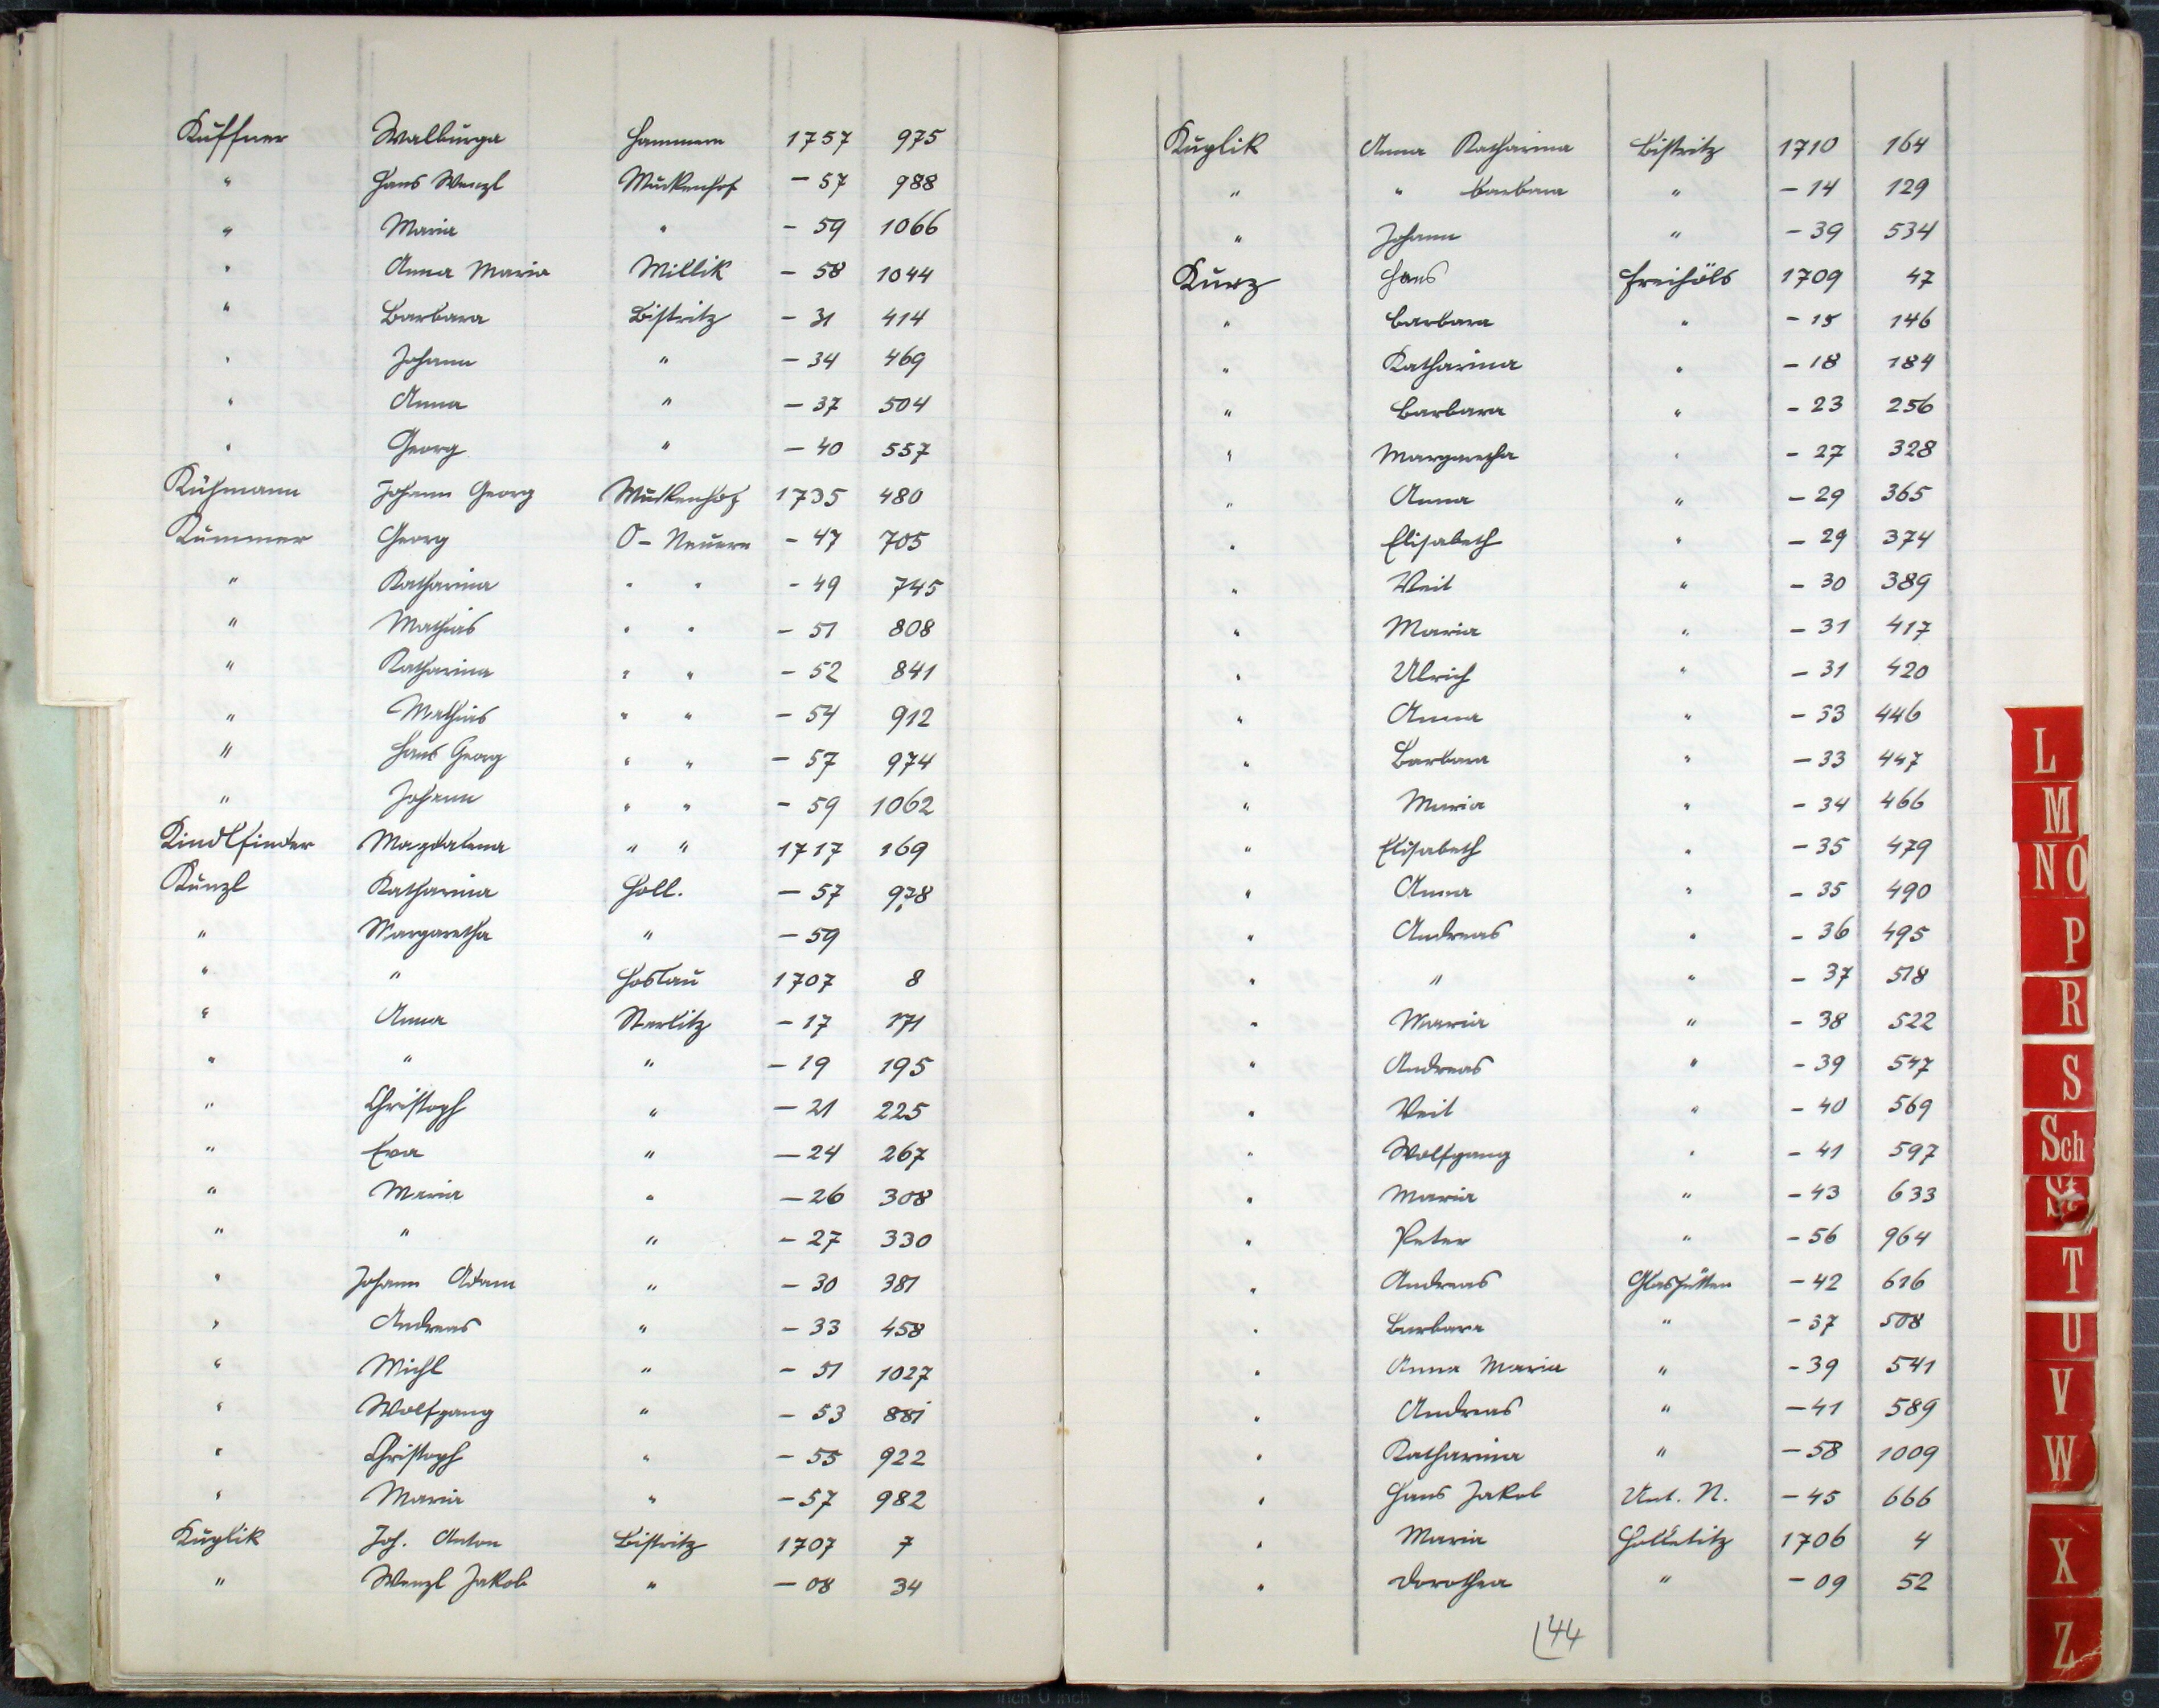 Kuffner Walburga Hammern 1757 975
" Hans Wenzl Muckenhof - 57 988
" Maria " - 59 1066
" Anna Maria Millik - 58 1044
" Barbara Bistritz - 31 414
" Johann " - 34 469
" Anna " - 37 504
" Georg " - 40 557
Kühmann Johann Georg Muckenhof 1735 480
Kummer Georg O-Neuern - 47 705
" Katharina " " - 49 745
" Mathias " " - 51 808
" Katharina " " - 52 841
" Mathias " " - 54 912
" Hans Georg " " - 57 974
" Johann " " - 59 1062
Kindlfinder Magdalena " " 1717 169
Künzl Katharina Holl. - 57 978
" Margaretha " - 59
" " Hostau 1707 8
" Anna Starlitz - 17 171
" " " - 19 195
" Christoph " - 21 225
" Eva " - 24 267
" Maria " - 26 308
" " " - 27 330
" Johann Adam " - 30 381
" Andreas " - 33 458
" Michl " - 51 1027
" Wolfgang " - 53 881
" Christoph " - 55 922
" Maria " - 57 982
Kuglik Joh. Anton Bistritz 1707 7
" Wenzl Jakob " - 08 34
Kuglik Anna Katharina Bistritz 1710 164
" " Barbara " - 14 129
" Johann " - 39 534
Kurz Hans Freihöls 1709 47
" Barbara " - 15 146
" Katharina " - 18 184
" Barbara " - 23 256
" Margaretha " - 27 328
" Anna " - 29 365
" Elisabeth " - 29 374
" Veit " - 30 389
" Maria " - 31 417
" Ulrich " - 31 420
" Anna " - 33 446
" Barbara " - 33 447
" Maria " - 34 466
" Elisabeth " - 35 479
" Anna " - 35 490
" Andreas " - 36 495
" " " - 37 518
" Maria " - 38 522
" Andreas " - 39 547
" Veit " - 40 569
" Wolfgang " - 41 597
" Maria " - 43 633
" Peter " - 56 964
" Andreas Glashütten - 42 616
" Barbara " - 37 508
" Anna Maria " - 39 541
" Andreas " - 41 589
" Katharina " - 58 1009
" Hans Jakob Unt. N. - 45 666
" Maria 1706 4
" Dorothea " - 09 52
44
L
M
N O
P
R
S
Sch
St
T
U
V
W
X
Z